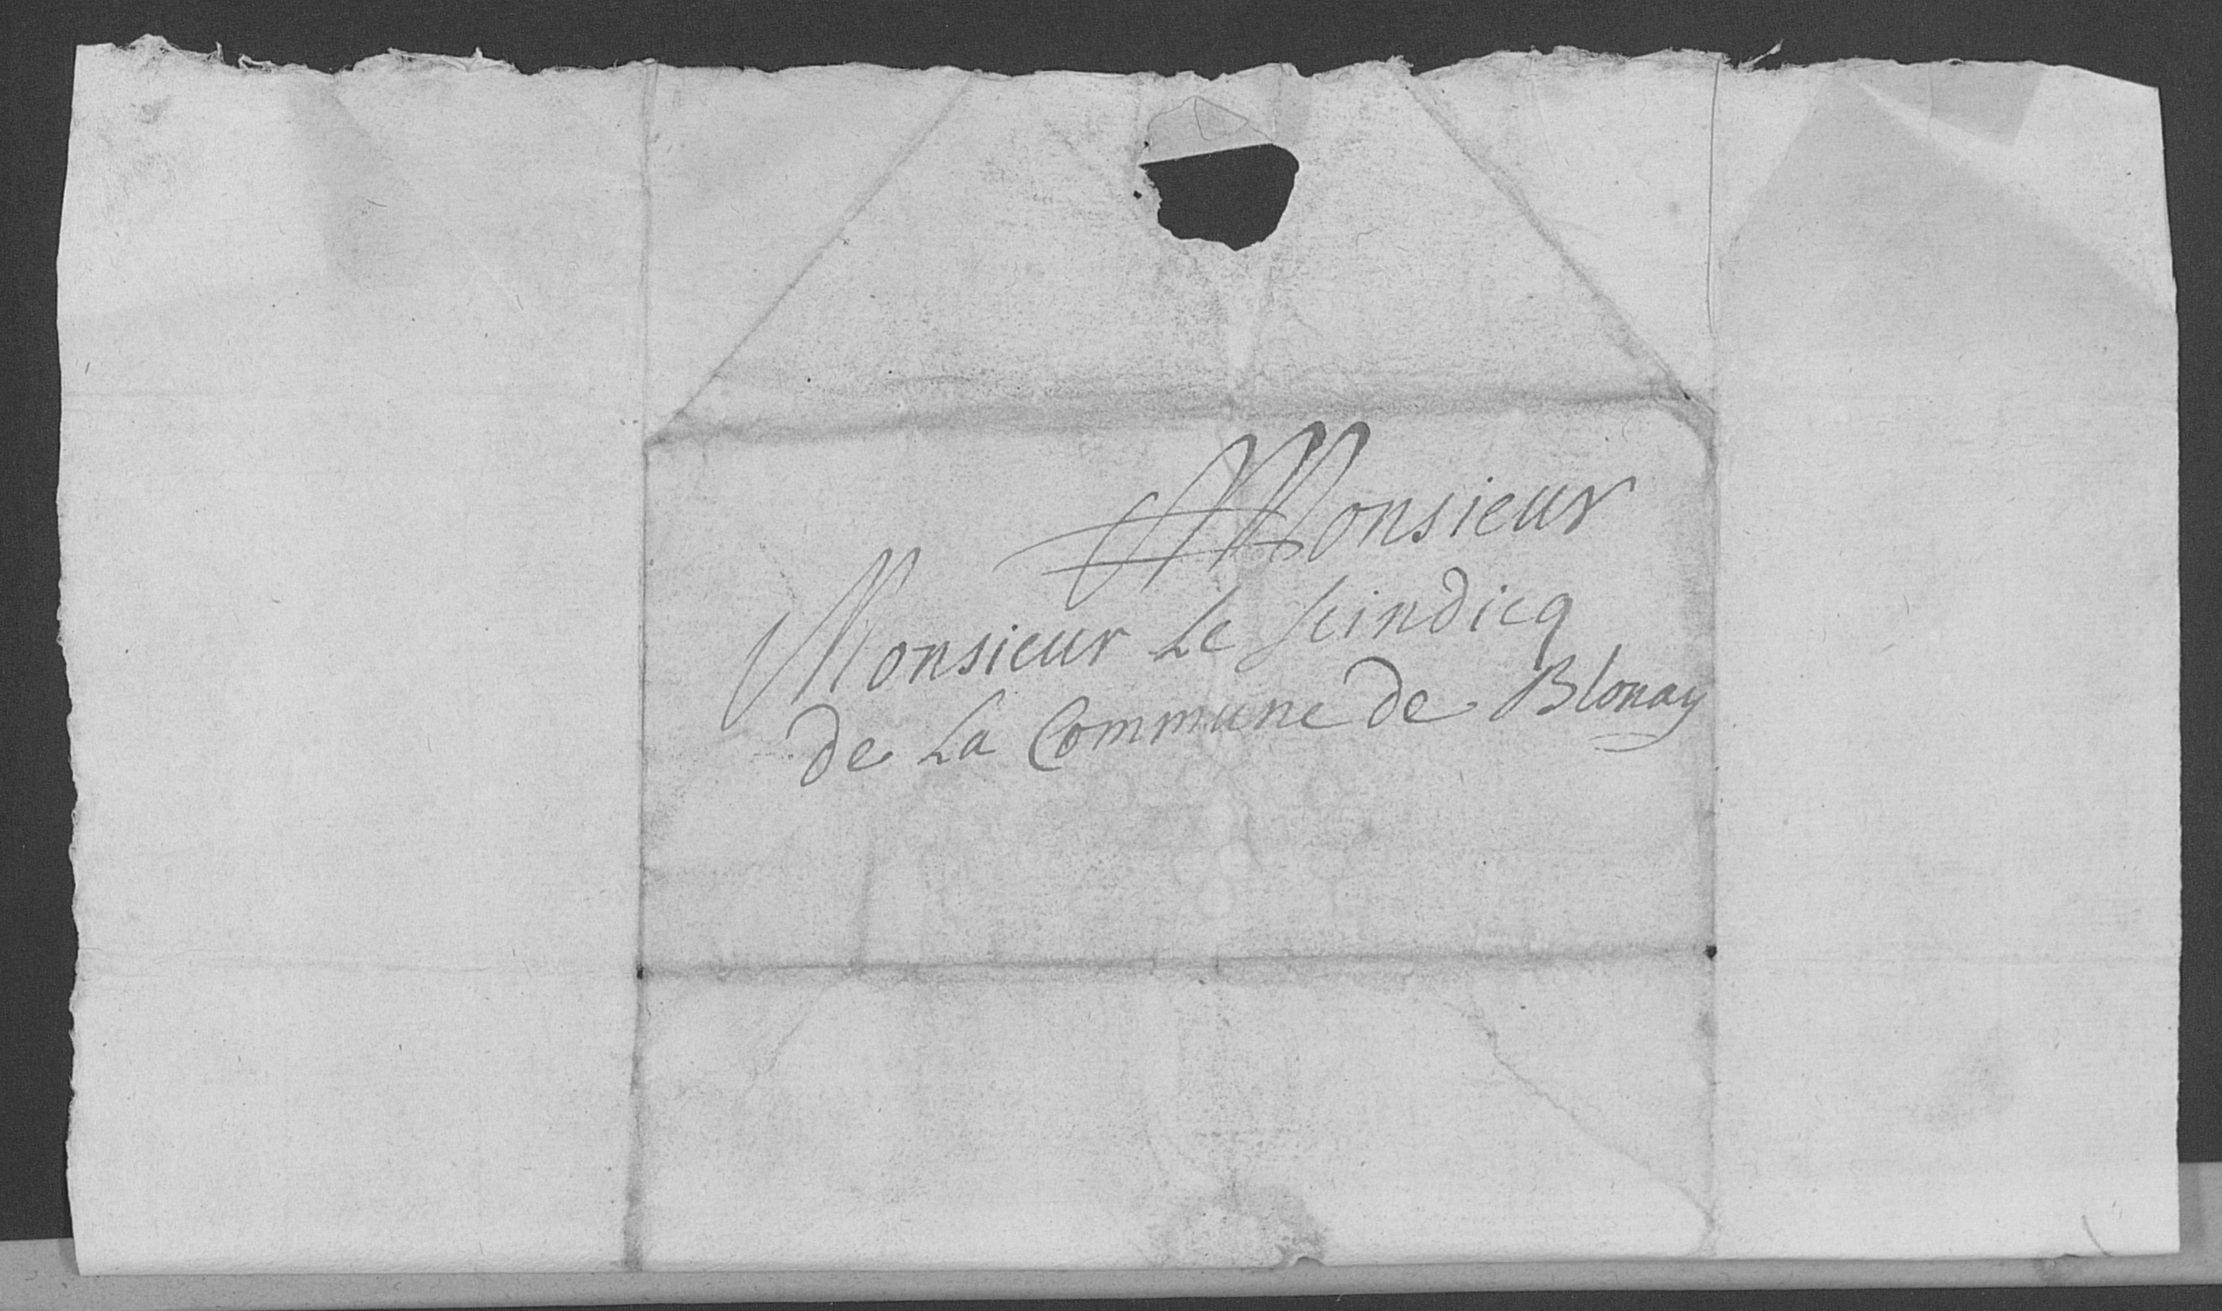 Monsieur
Monsieur Le scindicq
de La Commune de Blonay